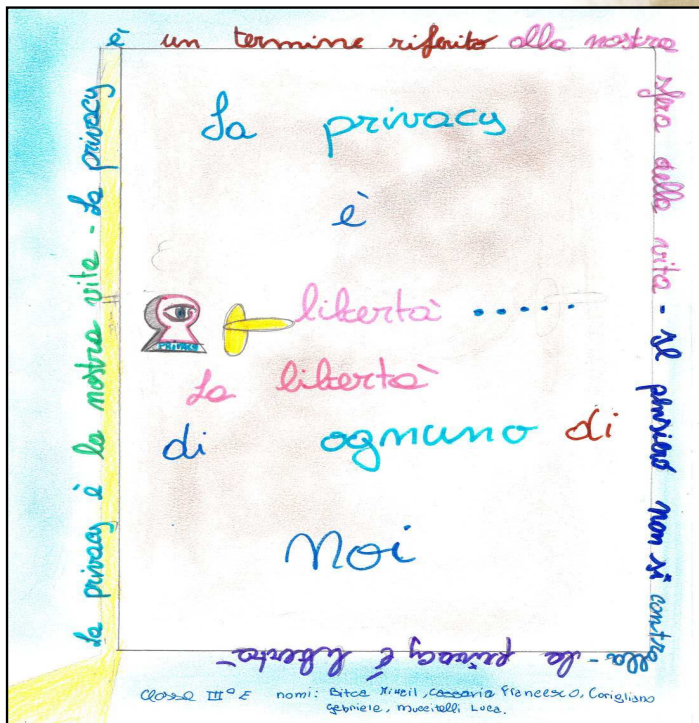 La privacy è la nostra vita - La privacy
è un termine riferito alla nostra
sfera della vita - Il pensiero non si controlla -
La privacy è libertà
La privacy
è
libertà .....
PRIVACY
La libertà
di ognuno di
Noi
Classe IIIº E nomi: Bitca Mihail, Casaria Francesco, Corigliano
Gabriele, Muccitelli Luca.